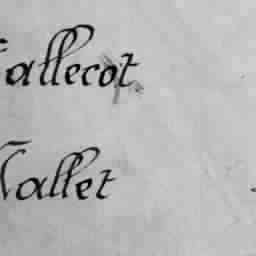 allecot
allet